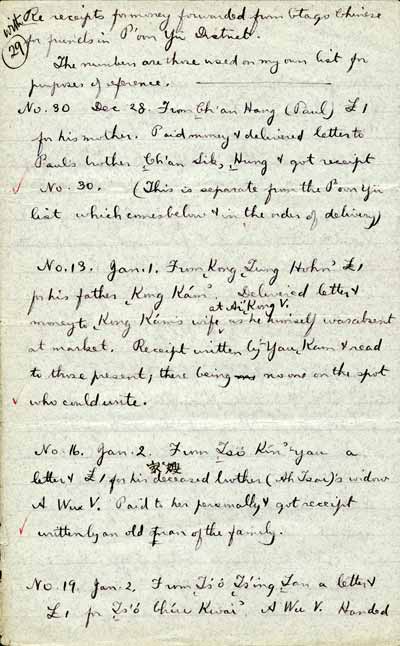 with
29
Re receipts for money forwarded from Otago Chinese
for friends in P'oon Yü District.
The numbers are those used on my own list for
purposes of reference.
No. 30 Dec 28. From Ch'an Hang (Paul) £1
for his mother. Paid money & delivered letter to
Paul's brother Ch'an Sik, Hung & got receipt
No. 30. (This is separate from the P'oon Yü
list which comes below & in the order of delivery)
No. 13. Jan. 1. From Kong Tung Hohn £1
for his father, Kong Kám. Delivered letter &
at Ai Kong V.
money to Kong Kám's wife as he himself was absent
at market. Receipt written by Yau Kam & read
to those present, there being no one on the spot
who could write.
No. 16. Jan. 2. From Tsó Kín Yau a
letter & £1 for his deceased brother (Ah Tsar)'s widow
A Wuu V. Paid to her personally & got receipt
written by an old man of the family.
No. 19. Jan. 2. From Ts'ó Ts'ing Fan a letter &
£1 for Ts'ó Chíu Kwai A Wuu V. Handed